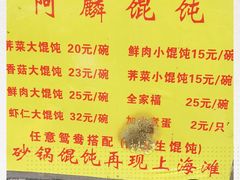 阿麟馄饨
荠菜大馄饨 20元/碗 鲜肉小馄饨15元/碗
香菇大馄饨 23元/碗 荠菜小馄饨15元/碗
鲜肉大馄饨 25元/碗 全家福 25元/碗
虾仁大馄饨 32元/碗 加 蛋 2元/只
任意鸳鸯搭配( 生馄饨)
砂锅馄饨再现上海滩